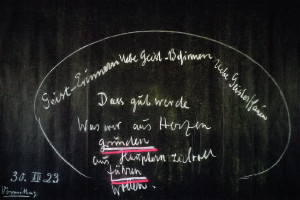 Geist-Erinnern Übe Geist-Besinnen Übe Geisterschauen
Dass gut werde
Was wir aus Herzen
gründen
aus Häuptern zielvoll
führen
wollen.
30. XII 23
Vormittag